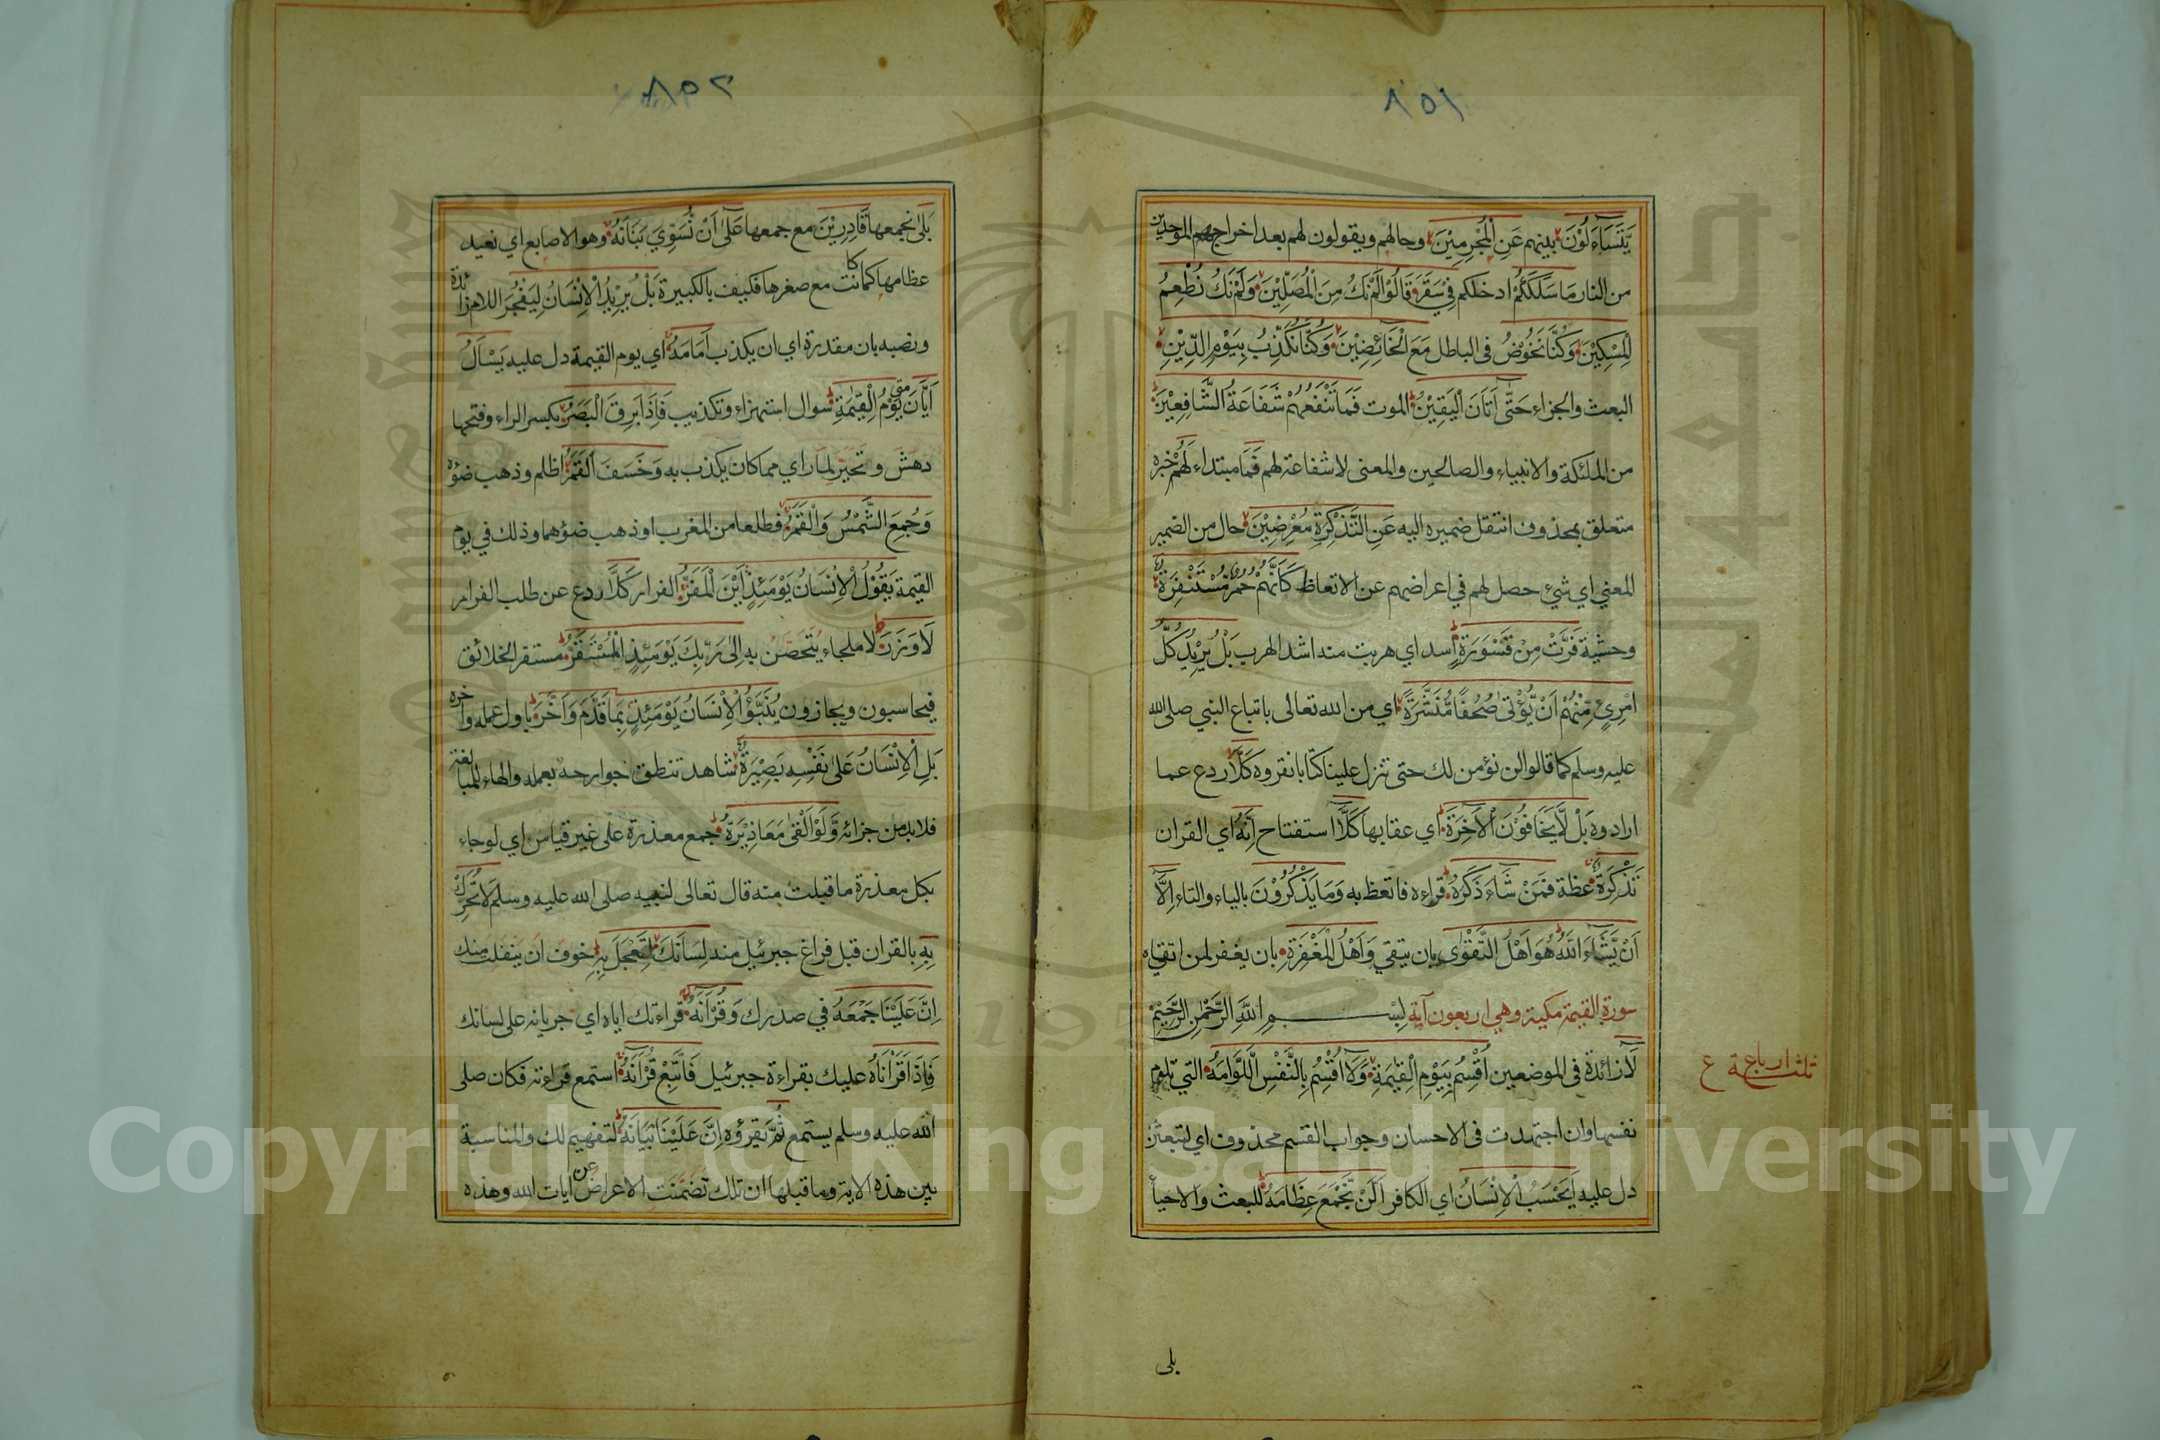 ٨٥١
يَتَسَاءَلُوْنَ بينهم عَنِ الْمُجْرِمِيْنَ وحالهم ويقولون لهم بعد اخراج الموحدين
من النار مَا سَلَكَكُمْ ادخلكم فِي سَقَرَ قَالُوْا لَمْ نَكُ مِنَ الْمُصَلِّيْنَ وَلَمْ نَكُ نُطْعِمُ
الْمِسْكِيْنَ وَكُنَّا نَخُوْضُ في الباطل مَعَ الْخَائِضِيْنَ وَكُنَّا نُكَذِّبُ بِيَوْمِ الدِّيْنِ
البعث والجزاء حَتّٰى اَتَانَ الْيَقِيْنُ الموت فَمَا تَنْفَعُهُمْ شَفَاعَةُ الشَّافِعِيْنَ
من الملئكة والانبياء والصالحين والمعنى لا شفاعة لهم فَمَا مبتداء لَهُمْ خبره
متعلق بمحذوف انتقل ضميره اليه عَنِ التَّذْكِرَةِ مُعْرِضِيْنَ حال من الضمير
المعني اي شيء حصل لهم في اعراضهم عن الاتعاظ كَاَنَّهُمْ حُمُرٌ مُسْتَنْفِرَةٌ
وحشية فَرَّتْ مِنْ قَسْوَرَةٍ اسد اي هربت منه اشد الهرب بَلْ يُرِيْدُ كُلُّ
امْرِئٍ مِنْهُمْ اَنْ يُؤْتٰى صُحُفًا مُنَشَّرَةً اي من الله تعالى باتباع النبي صلى الله
عليه وسلم كما قالوا لن نؤمن لك حتى تنزل علينا كتابا نقروه كَلَّا ردع عما
ارادوه بَلْ لَا يَخَافُوْنَ الْاٰخِرَةَ اي عقابها كَلَّا استفتاح اِنَّهُ اي القران
تَذْكِرَةٌ عظة فَمَنْ شَاءَ ذَكَرَهُ قراءه فاتعظ به وَمَا يَذْكُرُوْنَ بالياء والتاء اِلَّا
اَنْ يَشَاءَ اللّٰهُ هُوَ اَهْلُ التَّقْوٰى بان يتقي وَاَهْلُ الْمَغْفِرَةِ بان يغفر لمن اتقياه
سورة القيمة مكية وهي اربعون آية بِسْمِ اللّٰهِ الرَّحْمٰنِ الرَّحِيْمِ
لَا زائدة في الموضعين اُقْسِمُ بِيَوْمِ الْقِيٰمَةِ وَلَا اُقْسِمُ بِالنَّفْسِ اللَّوَّامَةِ التي تلوم
نفسها وان اجتهدت في الاحسان وجواب القسم محذوف اي لتبعثن
دل عليه اَيَحْسَبُ الْاِنْسَانُ اي الكافر اَلَّنْ نَجْمَعَ عِظَامَهُ للبعث والاحياء
بلى
٨٥٢
بَلٰى نجمعها قَادِرِيْنَ مع جمعها عَلٰى اَنْ نُسَوِّيَ بَنَانَهُ وهو الاصابع اي نعيد
عظامها كما كانت مع صغرها فكيف بالكبيرة بَلْ يُرِيْدُ الْاِنْسَانُ لِيَفْجُرَ اللام زائدة
ونصبه بان مقدرة اي ان يكذب اَمَامَهُ اي يوم القيمة دل عليه يَسْاَلُ
اَيَّانَ متى يَوْمُ الْقِيٰمَةِ سوال استهزاء وتكذيب فَاِذَا بَرِقَ الْبَصَرُ بكسر الراء وفتحها
دهش وتحير لما راي مما كان يكذب به وَخَسَفَ الْقَمَرُ اظلم وذهب ضؤه
وَجُمِعَ الشَّمْسُ وَالْقَمَرُ فطلعا من المغرب او ذهب ضؤهما وذلك في يوم
القيمة يَقُوْلُ الْاِنْسَانُ يَوْمَئِذٍ اَيْنَ الْمَفَرُّ الفرار كَلَّا ردع عن طلب الفرار
لَا وَزَرَ لا ملجاء يتحصن به اِلٰى رَبِّكَ يَوْمَئِذٍ الْمُسْتَقَرُّ مستقر الخلائق
فيحاسبون ويجازون يُنَبَّؤُ الْاِنْسَانُ يَوْمَئِذٍ بِمَا قَدَّمَ وَاَخَّرَ باول عمله واخره
بَلِ الْاِنْسَانُ عَلٰى نَفْسِهِ بَصِيْرَةٌ شاهد تنطق جوارحه بعمله والهاء للمبالغة
فلابد من جزائه وَلَوْ اَلْقٰى مَعَاذِيْرَهُ جمع معذرة على غير قياس اي لو جاء
بكل معذرة ما قبلت منه قال تعالى لنبيه صلى الله عليه وسلم لَا تُحَرِّكْ
بِهِ بالقران قبل فراغ جبرئيل منه لِسَانَكَ لِتَعْجَلَ بِهِ خوف ان ينفلت منك
اِنَّ عَلَيْنَا جَمْعَهُ في صدرك وَقُرْاٰنَهُ قراءتك اياه اي جريانه على لسانك
فَاِذَا قَرَاْنَاهُ عليك بقراءة جبرئيل فَاتَّبِعْ قُرْاٰنَهُ استمع قراءته فكان صلى
الله عليه وسلم يستمع ثُمَّ يقروه اِنَّ عَلَيْنَا بَيَانَهُ لتفهيم لك والمناسبة
بين هذه الاية وما قبلها ان تلك تضمنت الاعراض عن ايات الله وهذه
Copyright © King Saud University